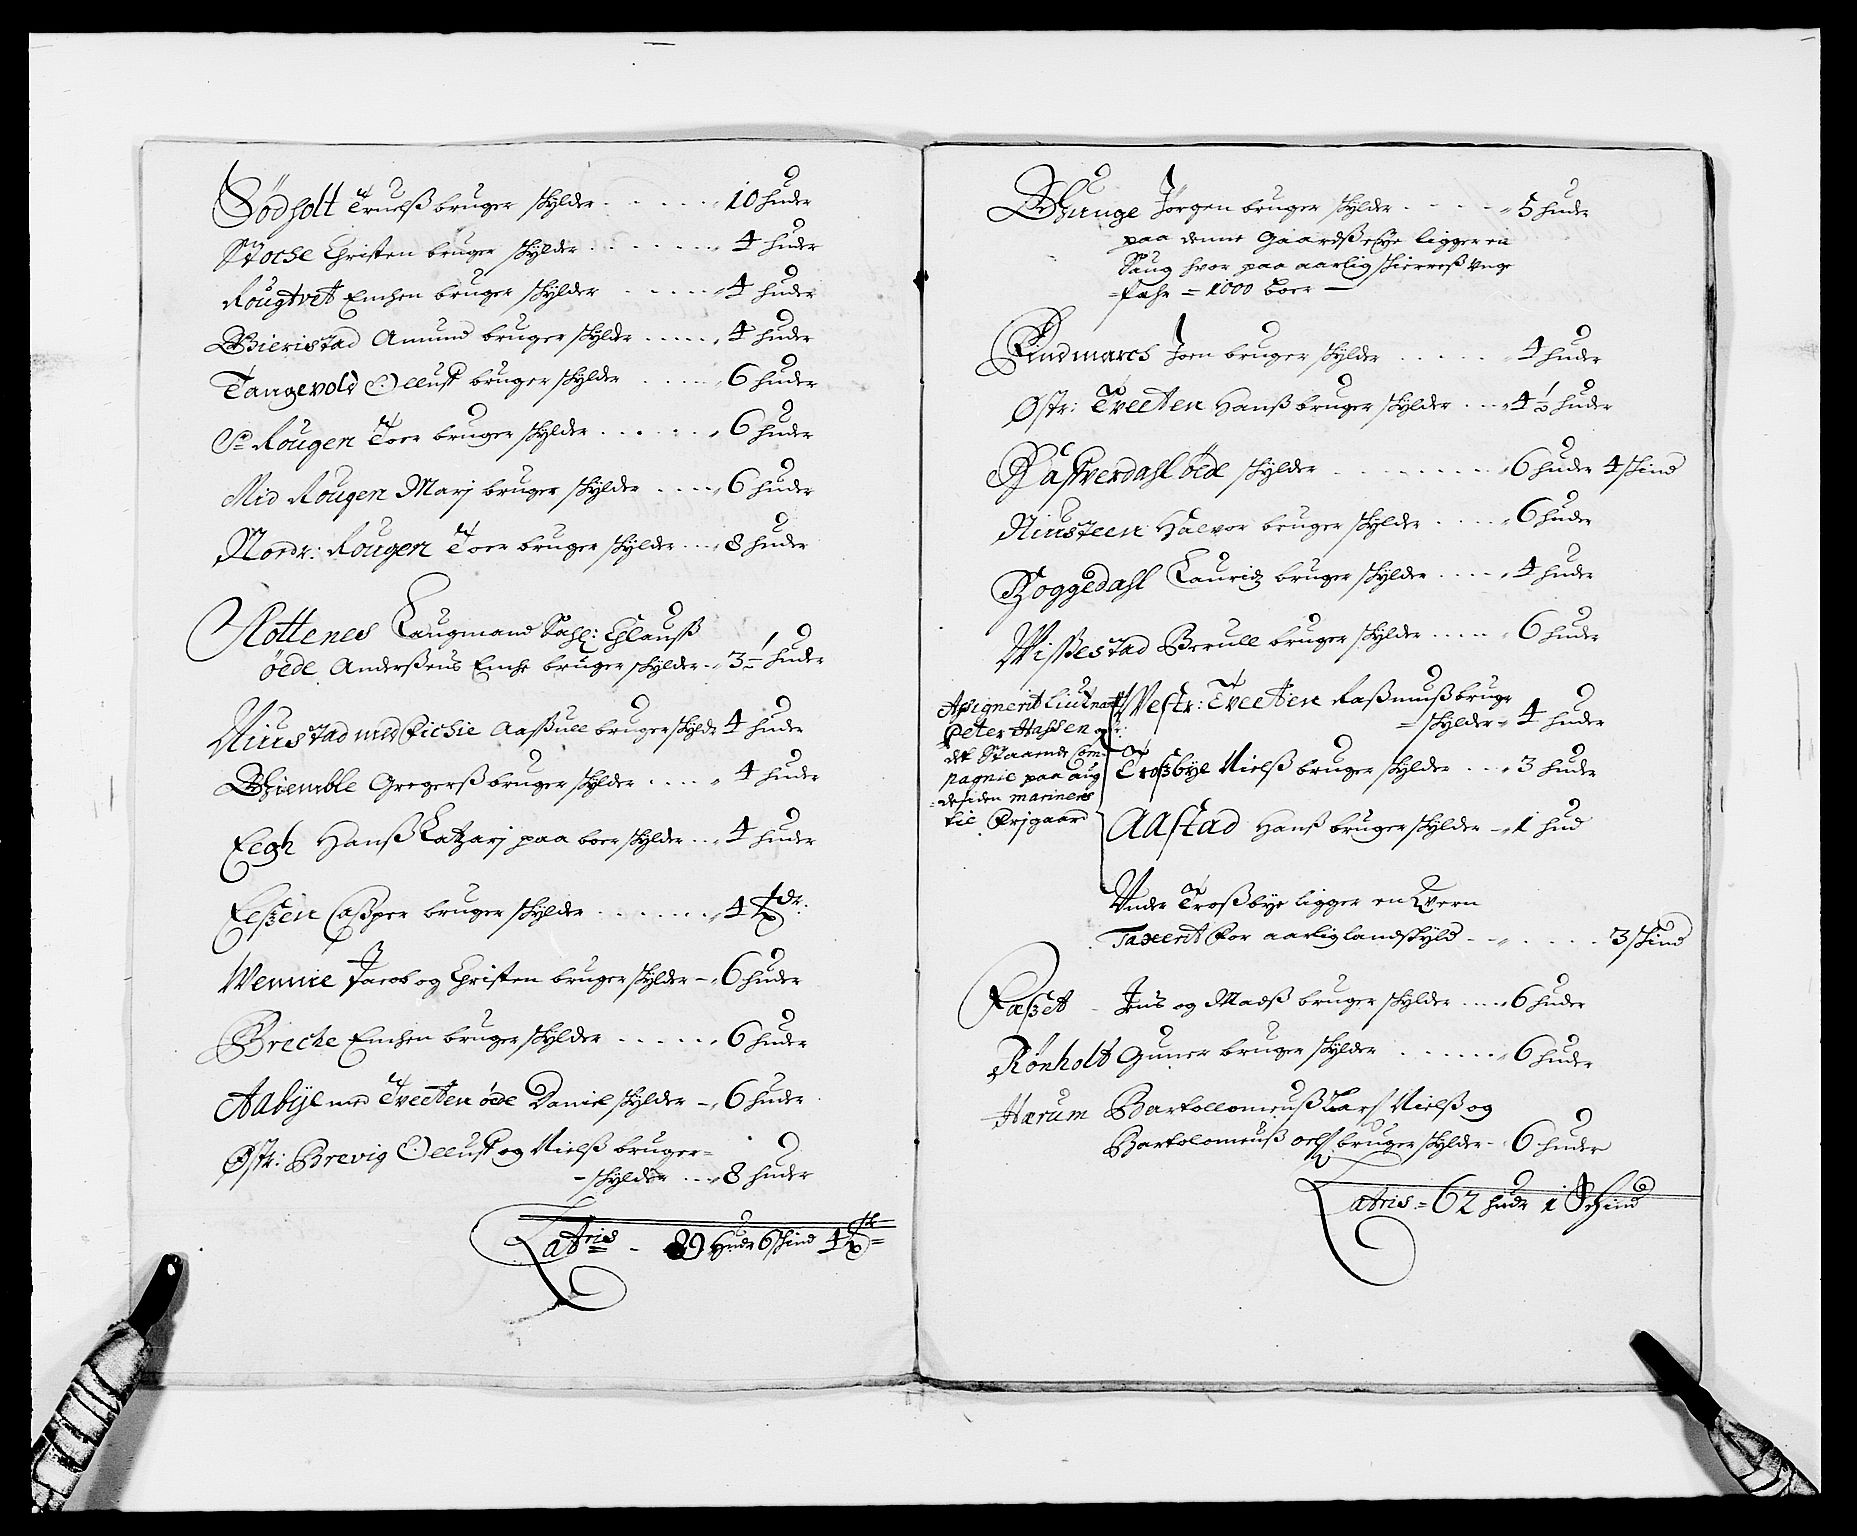 Södholt Truelß bruger skylder - - - - - 10 huder
Storche Christen bruger skylder - - - - - 4 huder
Rougtvet Emchen bruger skylder - - - - - 4 huder
Bieristad Amund bruger skylder - - - - - 4 huder
Tangevold Olluff bruger skylder - - - - - 6 huder
Sr Rougen Toer bruger skylder - - - - - 6 huder
Mid Rougen Marj bruger skylder - - - - 6 huder
Nordr: Rougen Toer bruger skylder - - - 8 huder
Rottenes Laugmand Sahl: Clauß
öede Anderßens Emche bruger skylder - - 3½ huder
Niustad med Fichie Aaßull bruger skylder 4 huder
Giemble Gregerß bruger skylder - - - - 4 huder
Eegh Hanß Katzarj paa boer skylder - - 4 huder
Eeßen Caßper bruger skylder - - - - - 4
Wennie Jacob og Christen bruger skylder - 6 huder
Breche Emchen bruger skylder - - - - - 6 huder
Aabÿe med Tveeten öde Daniel skylder - 6 huder
Østr: Brevig Olluff og Nielß bruger =
- skylder - - - 8 huder
Latris - 89 Hudr 6 skind 4
Giunge Jörgen bruger skylder - - - - 5 huder
paa denne Gaardß eÿe ligger en
Saug hvor paa aarlig skierreß Unge
= fahr = 1000 boer —
Findmarch Joen bruger skylder - - - - - 4 huder
Østr: Tveeten Hanß bruger skylder - - - 4½ huder
Haffverdahl öede skylder - - - - - - - 6 huder 4 skind
Niusteen Halvor bruger skylder - - - - 6 huder
Hoggedahl Lauridz bruger skylder - - - - 4 huder
Wißestad Berull bruger skylder - - - - - 6 huder
Assignerit Liutnant
Peter Hassen
det Staaende Com-
pagnie paa aug
= desiden marinens
tie Frjgaard
Westr: Tveeten Raßmuß bruger
= skylder = 4 huder
Troßbye Nielß bruger skylder - - - 3 huder
Aastad Hanß bruger skylder - - 1 hud
Under Troßbye ligger en Qvern
Taxerit for aarlig landskyld - - - - - - 3 skind
Faßet - Jens og Madß bruger skylder - - - - 6 huder
Rönholt Guner bruger skylder - - - - - - 6 huder
Harum Bartollomeuß Lars Nielß og
Bartolomeuß Oels bruger skylder - 6 huder
Latris = 62 hudr 1 Skind